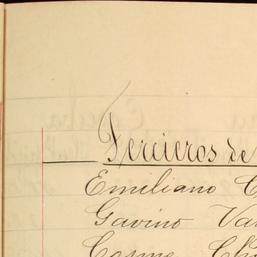 Tercieros de
Emiliano C
Gavino Va
Cosme Ch